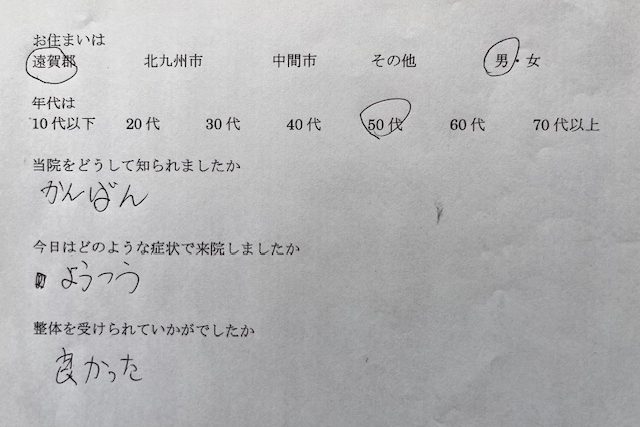 お住まいは
遠賀郡 北九州市 中間市 その他 男・女
年代は
10代以下 20代 30代 40代 50代 60代 70代以上
当院をどうして知られましたか
かんばん
今日はどのような症状で来院しましたか
ようつう
整体を受けられていかがでしたか
良かった